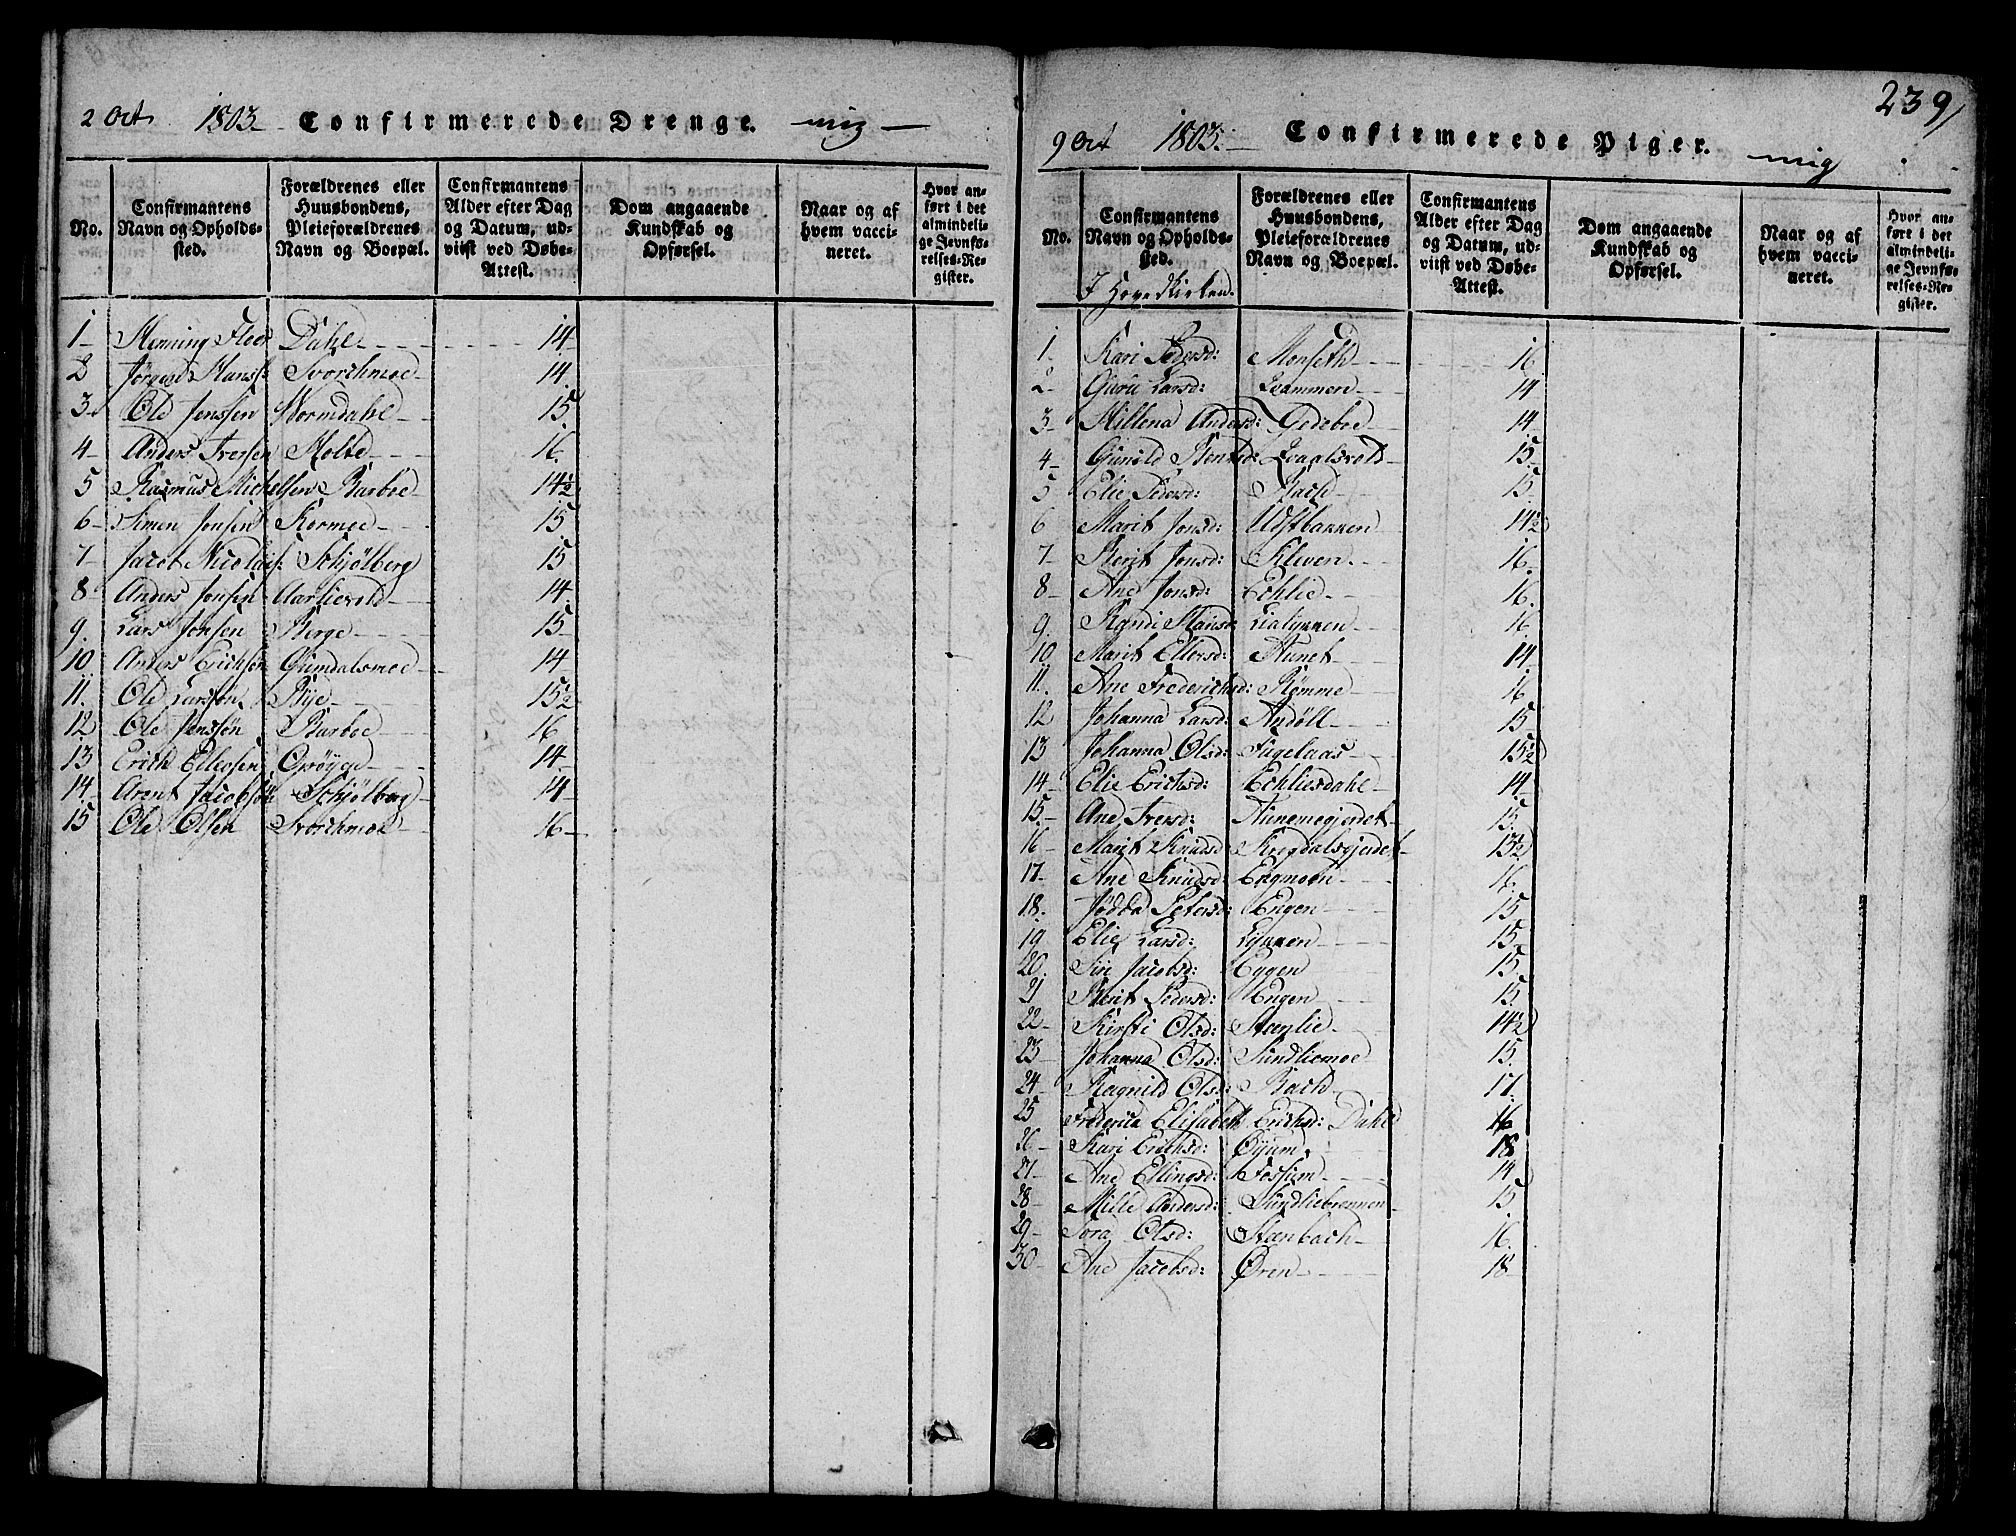 2 Oct 1803 - Confirmerede Drenge. mig -
No.
Confirmantens Navn og Opholdssted.
Forældrenes eller Huusbondens, Pleieforældrenes Navn og Boepæl.
Confirmantens Alder efter Dag og Datum, udviist ved Døbe-Attest.
Dom angaaende Kundskab og Opførsel.
Naar og af hvem vaccineret.
Hvor anført i det almindelige Jevnførelses-Register.
1 - Heming Floer Dahle - 14 -
2 Jørgen Hanss: Svorchmoe - 14.
3. Ole Jenssen Wormdahl - 15
4 - Anders Iversen Holte - 16.
5 Rasmus Michelsen Barboe - 14½
6 - Simen Jonsen Kormoe - 15
7 - Jacob Nicolais: Schjølberg 15
8 - Anders Jonsen Aarlievold - 14.
9. Lars Jonsen Berge - 15 -
10 Anders Erichsen Gumdalsmoe - 14
11. Ole Larssøn Rye - 15½
12. Ole Jenssøn Barboe - 16
13. Erich Ellevsen Grøyge - 14 -
14. Arent Jacobsøn Schjølberg - 14 -
15 Ole Olsen Svorchmoe - 16 -
239
9 Oct 1803. - Confirmerede Piger. mig
No.
Confirmantens Navn og Opholdssted.
I Hovedkirken.
Forældrenes eller Huusbondens, Pleieforældrenes Navn og Boepæl.
Confirmantens Alder efter Dag og Datum, udviist ved Døbe-Attest.
Dom angaaende Kundskab og Opførsel.
Naar og af hvem vaccineret.
Hvor anført i det almindelige Jevnførelses-Register.
1. Kari Pedersd: Monseth - 16
2 - Guru Larsd: Qvammen - 14
3 - Millena Andersd: Gedeboe - 14
4 - Gunild Bentsd: Qvaalsvold - 15.
5 Elie Pedersd: Bach - 15.
6 Marit Jonsd: Udstbakken 14½
7 - Berit Jonsd: Kleven - 16.
8 - Ane Jonsd: Echlie - 16.
9. Randi Hansd: Lialykken 16
10. Marit Ellevsd: Aunet - 14
11. Ane Frederichsd: Rømme - 16
12 Johanna Larsd: Andøll - 15
13 Johanna Olsd: Fugelaas - 15½
14 - Elie Erichsd: Echliesdahl - 14.
15 - Ane Iversd: Aunemogjerdet - 15.
16 - Marit Knudsd Krogdalsgjerdet - 13½
17 - Ane Knudsd: Engmoen - 16.
18. Jødda Petersd: Engen - 15
19. Elie Larsd: Lykken - 15.
20. Siri Jacobsd: Eggen - 15.
21 Berit Pedersd: Engen - 15.
22 - Kirsti Olsd: Stænlie - 14½
23 - Johanna Olsd: Sundliemoe - 15
24 - Ragnild Olsd: Bach - 17.
25 Frederica Elisabeth Erichsd: Dahl 16
26 - Kari Erichsd: Øyum - 18
27 - Ane Ellingsd: Fossum - 14
28 - Mille Andersd: Sundliebrennen - 15
29 - Sora Olsd: Stænbach - 16.
30 - Ane Jacobsd: Øren - 18